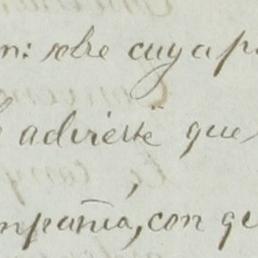 n: sobre cuya p
advierte que
mpañía, con qu